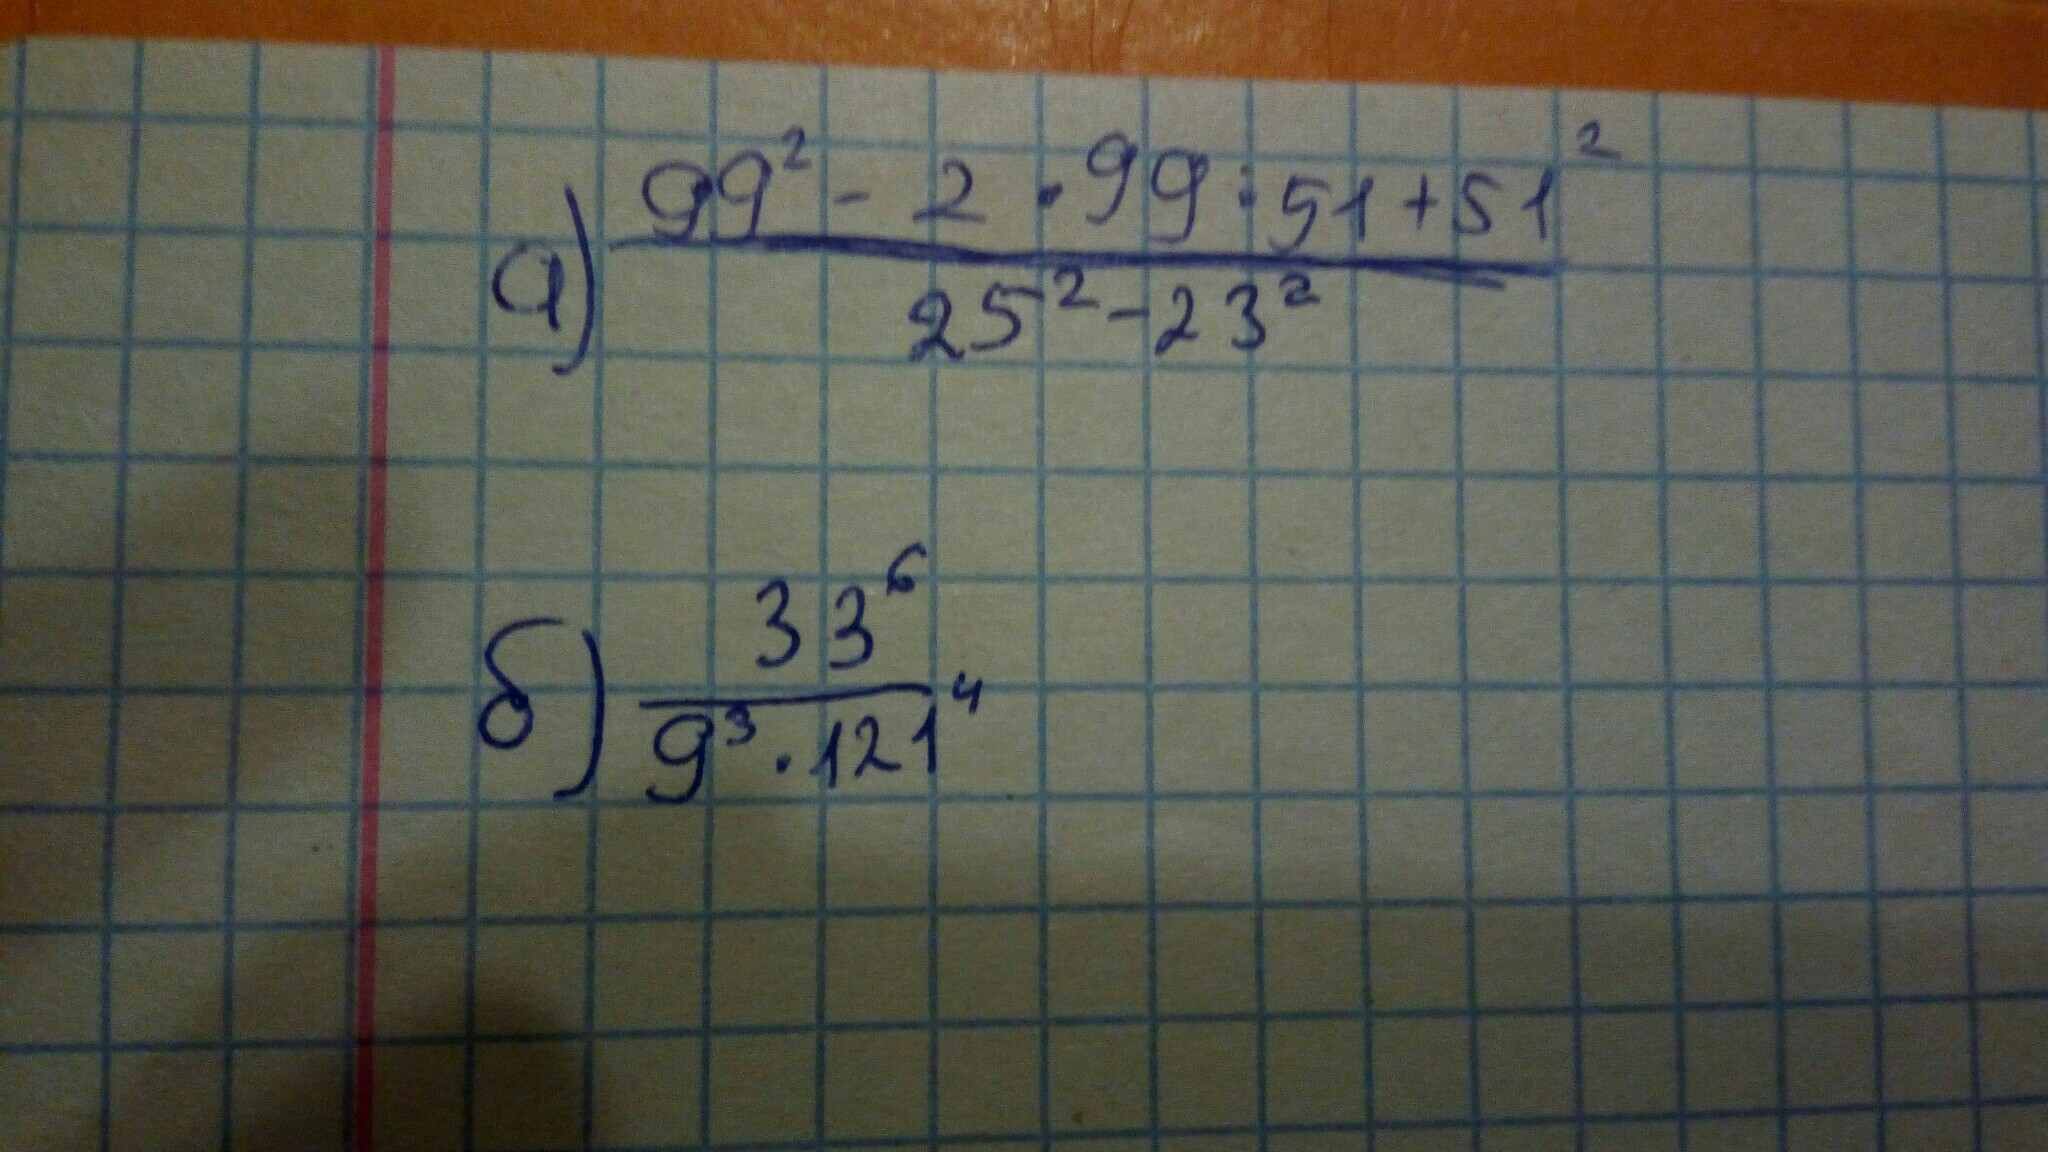 а) (99² - 2 · 99 · 51 + 51²) / (25² - 23²)
б) 33⁶ / (9³ · 121⁴)